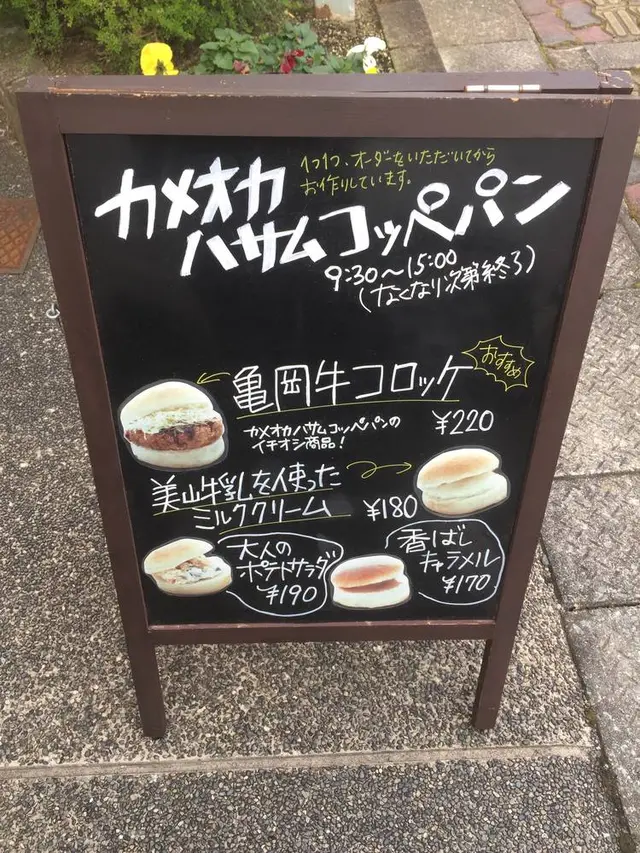 1つ1つ、オーダーをいただいてから
お作りしています。
カメオカ
ハサムコッペパン
9:30～15:00
(なくなり次第終了)
おすすめ
亀岡牛コロッケ
カメオカハサムコッペパンの
イチオシ商品!
¥220
美山牛乳を使った
ミルククリーム
¥180
大人の
ポテトサラダ
¥190
香ばし
キャラメル
¥170